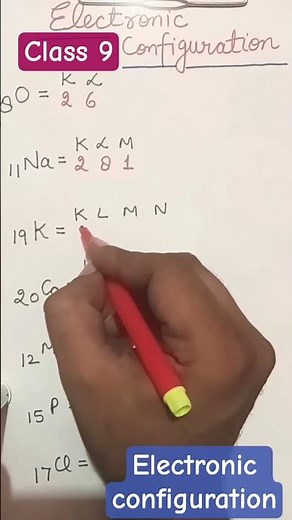 Electronic
Class 9 Configuration
K L
8O = 2 6
K L M
11Na = 2 8 1
K L M N
19K =
20Ca
12M
15P
17Cl =
Electronic
configuration